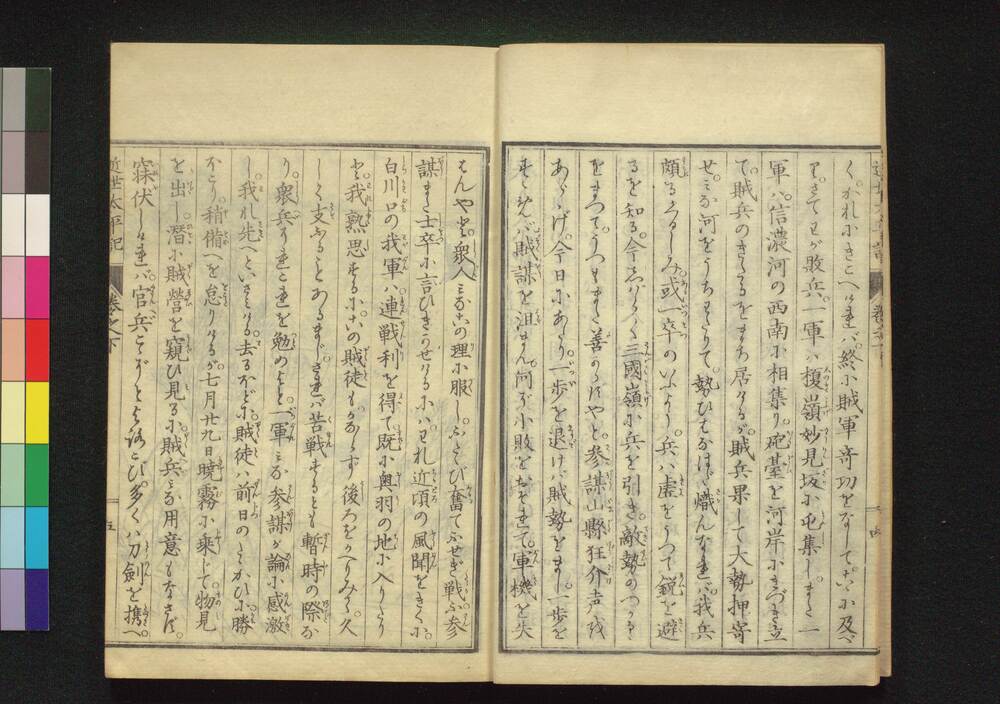 く。かれにきこへければ。終に賊軍奇功をなして。こゝに及べ
り。さてわが敗兵。一軍ハ榎嶺妙見坂に屯集し。また一
軍ハ。信濃河の西南に相集り。砲臺を河岸にきづき立
て。賊兵のきたるをまち居けるが。賊兵果して大勢押寄
せ。みな河をうちわたりて。勢ひはなはだ熾んなれば。我兵
頗るくるしみ。或一卒のいふよう。兵ハ虚をうつて鋭を避
るを知る。今しばらく三國嶺に兵を引き。敵勢のつかるゝ
をまつて。うつもまた善からずやと。参謀山縣狂介声
あらゝげ。今日にあたり。一歩を退けバ賊勢をまし。一歩を
すゝめば賊謀を沮まん。何ぞ小敗をおそれて。軍機を失
四
はんやと。衆人みなこの理に服し。ふたゝび奮てふせぎ戦ふ。参
謀また士卒に言ひきかせけるにハ。われ近頃の風聞をきくに。
白川口の我軍ハ連戦利を得て。既に奥羽の地に入りたり
と。我熟思するに。この賊徒もかならず後ろをかへりみる。久
しく支ふることあるまじ。されば苦戦するとも暫時の際な
り。衆兵これを勉めよと。一軍みな参謀が論に感激
し。我れ先へといさみける。去るほどに。賊徒ハ前日のたゝかひに勝
ほこり。稍備へを怠りけるが。七月廿九日暁霧に乗じて。物見
を出し。潜に賊營を窺ひ見るに。賊兵みな用意もなさず。
寐伏しければ。官兵こゝぞとよろこび。多くハ刀劍を携へ。
近世太平記
巻之下
五